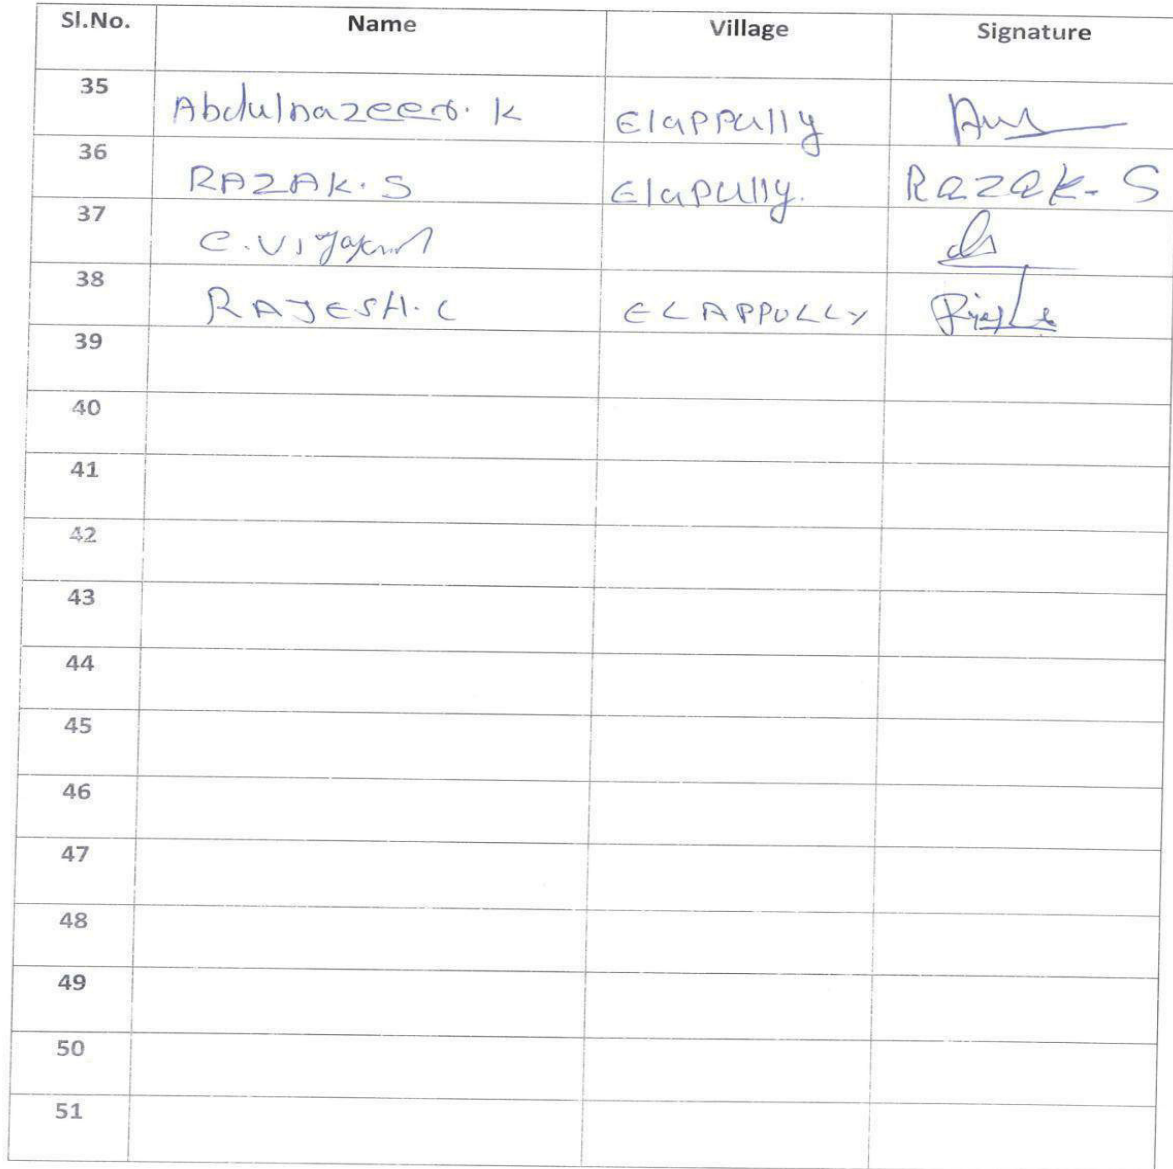 Sl.No. Name Village Signature
35 Abdulnazeer. K Elappully
36 RAZAK. S Elapully. Razak. S
37 C. Vijayan
38 RAJESH. C ELAPPULLY
39
40
41
42
43
44
45
46
47
48
49
50
51